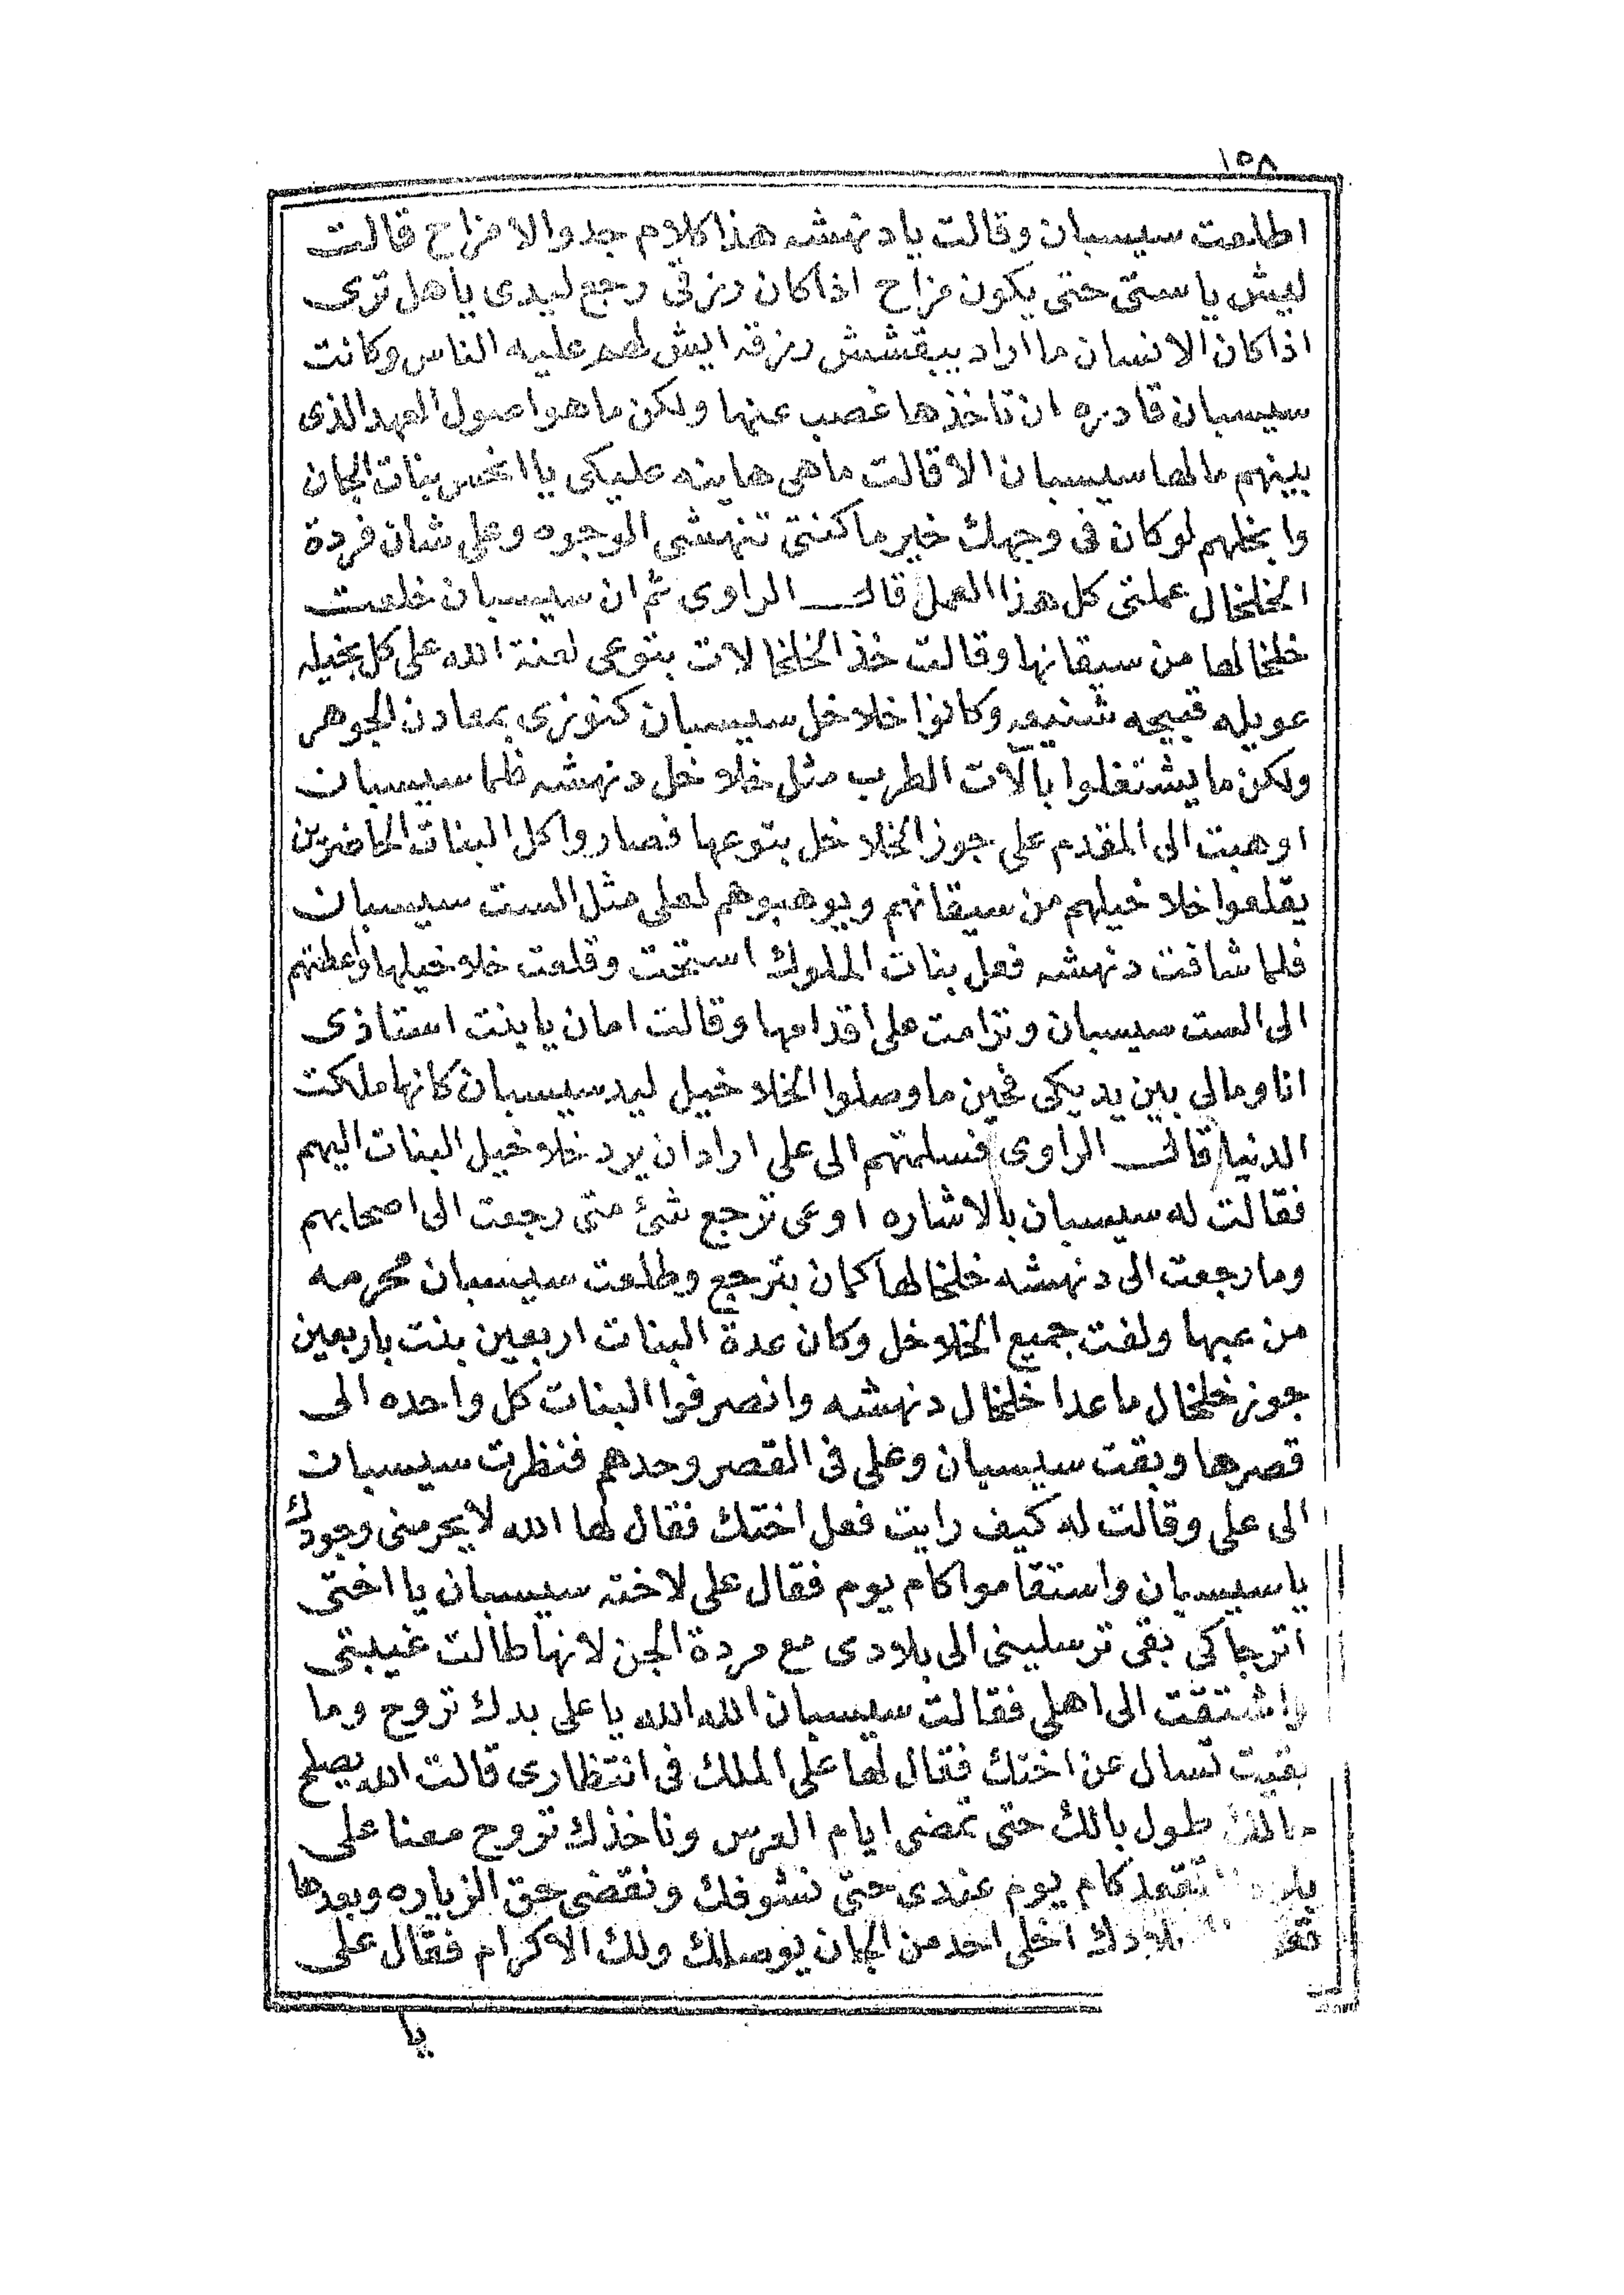 ١٥٨
اطلعت سيسبان وقالت يا دنهشه هذا كلام جد والا مزاح قالت
ليش يا ستى حتى يكون مزاح اذا كان رزقى رجع ليدى يا هل ترى
اذا كان الانسان ما اراد يبقشش رزقه ايش لهم عليه الناس وكانت
سيسبان قادره ان تاخذها غصب عنها ولكن ما هو اصول العهد الذى
بينهم ما لها سيسبان الا قالت ما هى هاينه عليكى يا انحس بنات الجان
وابخلهم لو كان فى وجهك خير ما كنتى تنهشى الوجوه وعلى شان فردة
الخلخال عملتى كل هذا العمل قال الراوى ثم ان سيسبان خلعت
خلخالها من سيقانها وقالت خذ الخلخالات بتوعى لعنة الله على كل بخيله
عويله قبيحه شنيعه وكانوا خلاخل سيسبان كنوزى بمعادن الجوهر
ولكن ما يشتغلوا بالات الطرب مثل خلاخل دنهشه فلما سيسبان
اوهبت الى المقدم على جوز الخلاخل بتوعها فصاروا كل البنات الحاضرين
يقلعوا خلاخيلهم من سيقانهم ويوهبوهم لعلى مثل الست سيسبان
فلما شافت دنهشه فعل بنات الملوك استحت وقلعت خلاخيلها واعطتهم
الى الست سيسبان وترامت على اقدامها وقالت امان يا بنت استاذى
انا ومالى بين يديكى فحين ما وصلوا الخلاخيل ليد سيسبان كانها ملكت
الدنيا قال الراوى فسلمتهم الى على اراد ان يرد خلاخيل البنات اليهم
فقالت له سيسبان بالاشاره اوعى ترجع شئ متى رجعت الى اصحابهم
وما رجعت الى دنهشه خلخالها كمان بترجع وطلعت سيسبان محرمه
من عبها ولفت جميع الخلاخل وكان عدة البنات اربعين بنت باربعين
جوز خلخال ما عدا خلخال دنهشه وانصرفوا البنات كل واحده الى
قصرها وبقت سيسبان وعلى فى القصر وحدهم فنظرت سيسبان
الى على وقالت له كيف رايت فعل اختك فقال لها الله لا يحرمنى وجودك
يا سيسبان واستقاموا كام يوم فقال على لاخته سيسبان يا اختى
اترجاكى بقى ترسلينى الى بلادى مع مردة الجن لانها طالت غيبتى
واشتقت الى اهلى فقالت سيسبان الله الله يا على بدك تروح وما
بقيت تسال عن اختك فقال لها على الملك فى انتظارى قالت الله يصلح
حالك طول بالك حتى تمضى ايام العرس وناخذك تروح معنا على
تقعد كام يوم عندى حتى نشوفك ونقضى حق الزياره وبعدها
بلادك اخلى احد من الجان يوصلك ولك الاكرام فقال على
يا